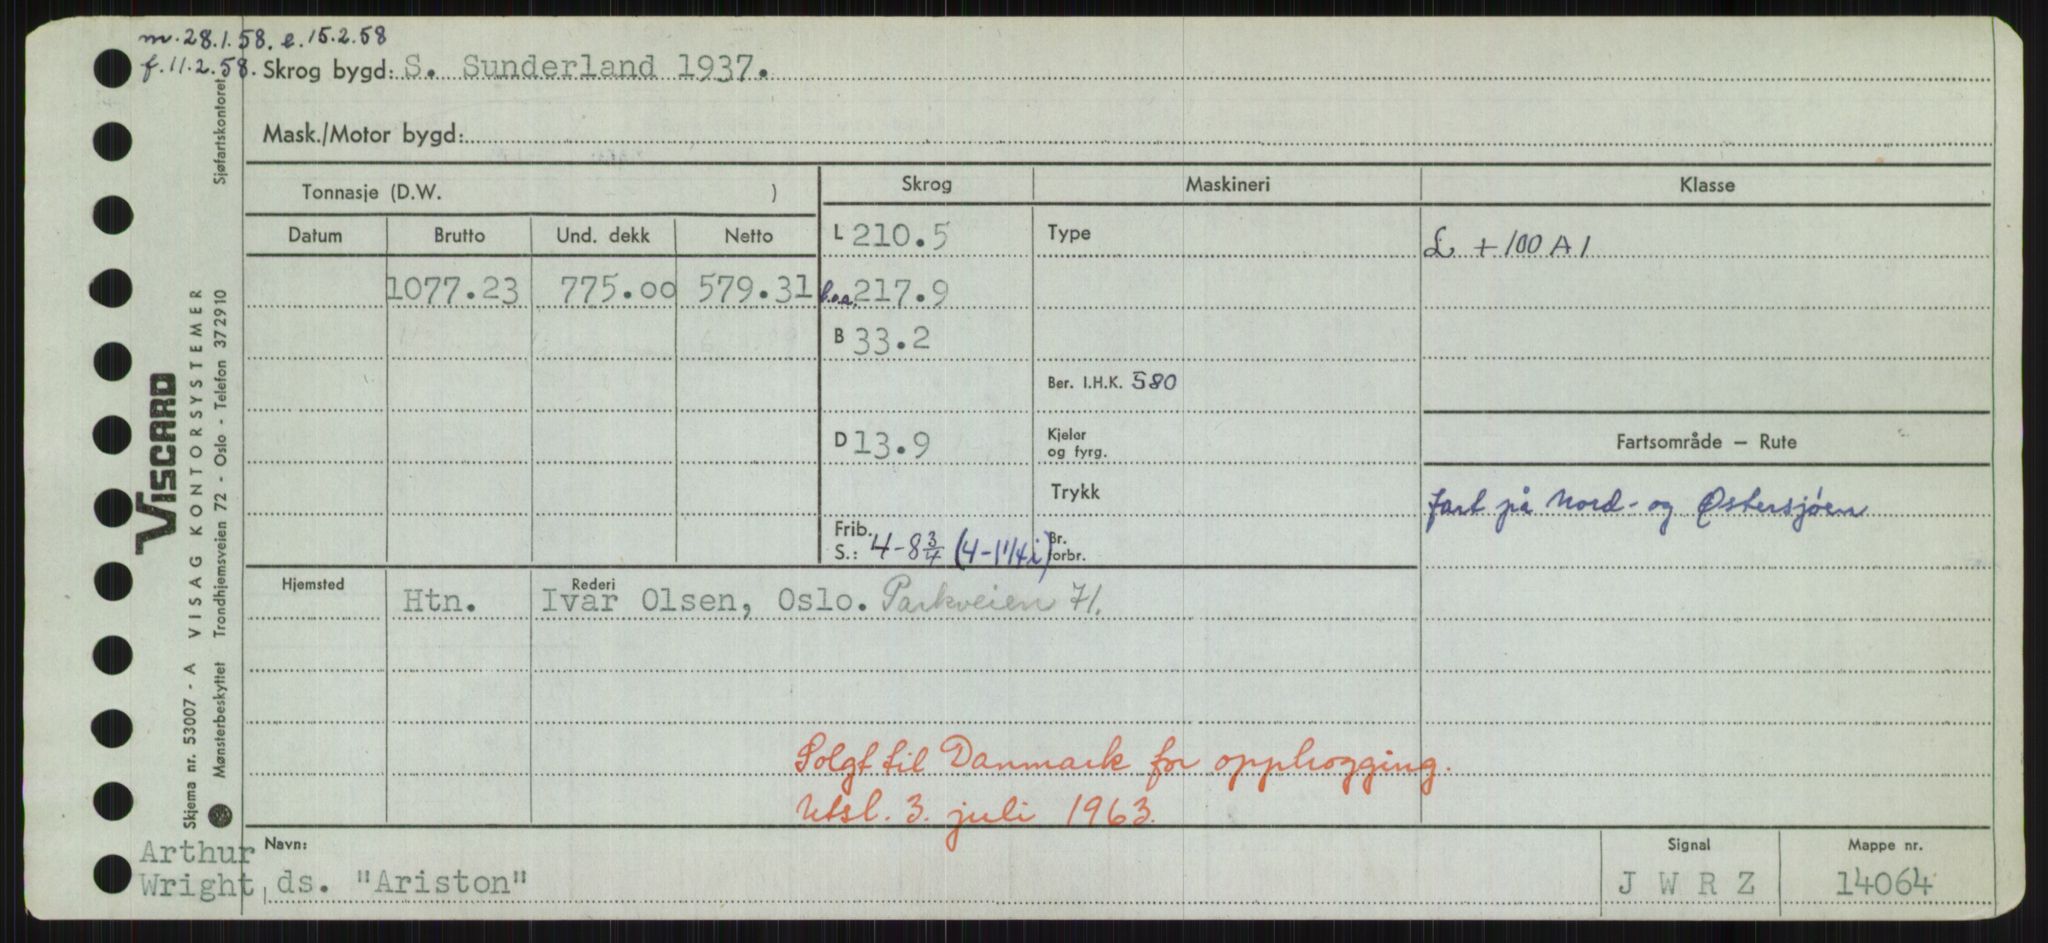 m. 28.1.58. e. 15.2.58
f. 11.2.58.
Skrog bygd: S. Sunderland 1937.
Mask./Motor bygd:
Tonnasje (D.W. )
Skrog
Maskineri
Klasse
Datum Brutto Und. dekk Netto
L 210.5
Type
L +100 A 1
1077.23 775.00 579.31
l.o.a. 217.9
B 33.2
Ber. I.H.K. 580
D 13.9
Kjeler
og fyrg.
Fartsområde – Rute
Trykk
fart på Nord- og Østersjøen
Frib.
S.: 4-8 3/4 (4-11/4 i)
Br.
forbr.
Hjemsted Htn.
Rederi
Ivar Olsen, Oslo. Parkveien 71.
Solgt til Danmark for opphogging.
Utsl. 3. juli 1963.
Navn:
Arthur
Wright, ds. "Ariston"
Signal
J W R Z
Mappe nr.
14064
VISCARD
Skjema nr. 53007 - A VISAG KONTORSYSTEMER
Mønsterbeskyttet Trondhjemsveien 72 - Oslo - Telefon 372910
Sjøfartskontoret